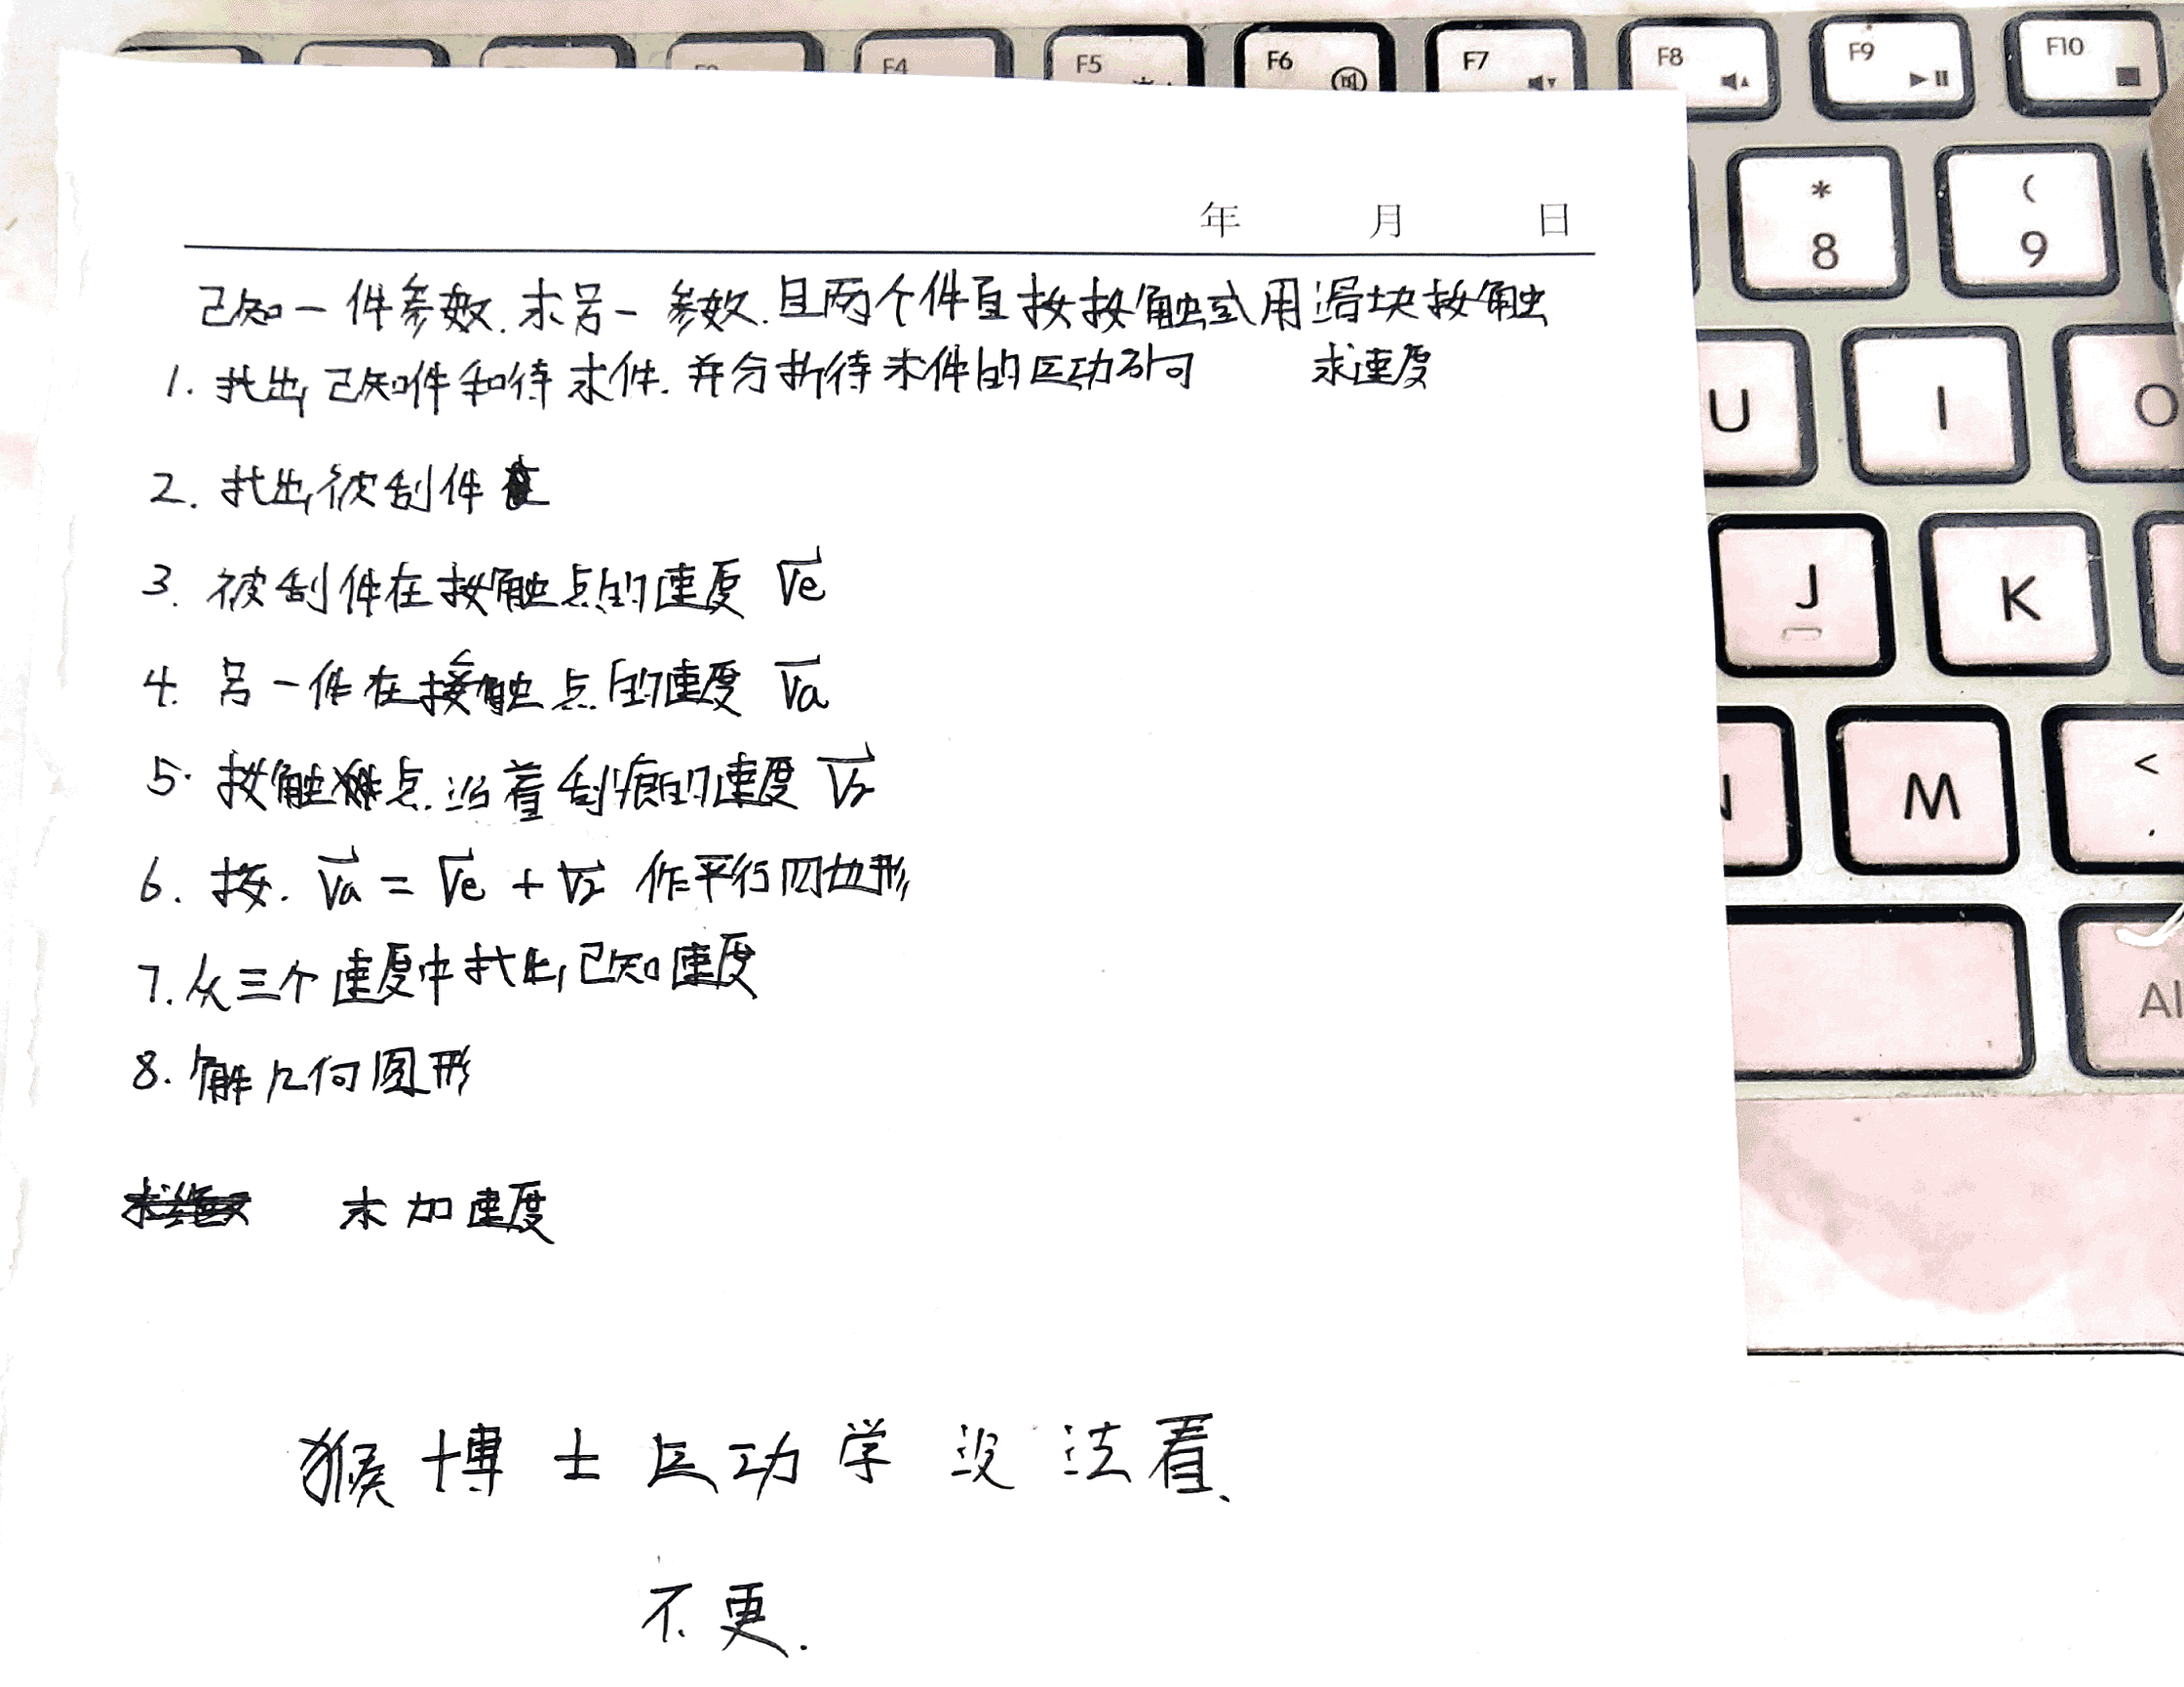 F4
F5
F6
F7
F8
F9
F10
*
8
(
9
年 月 日
已知一件参数.求另一参数.且两个件直接接触或用滑块接触
1. 找出已知件和待求件.并分析待求件的运动方向 求速度
2. 找出被刮件
3. 被刮件在接触点的速度 Ve
4. 另一件在接触点的速度 Va
5. 接触点沿着刮痕的速度 Vr
6. 按. Va = Ve + Vr 作平行四边形
7. 从三个速度中找出已知速度
8. 解几何图形
求加速度
猴博士运动学没法看.
不更.
U
I
O
J
K
M
<
,
Al